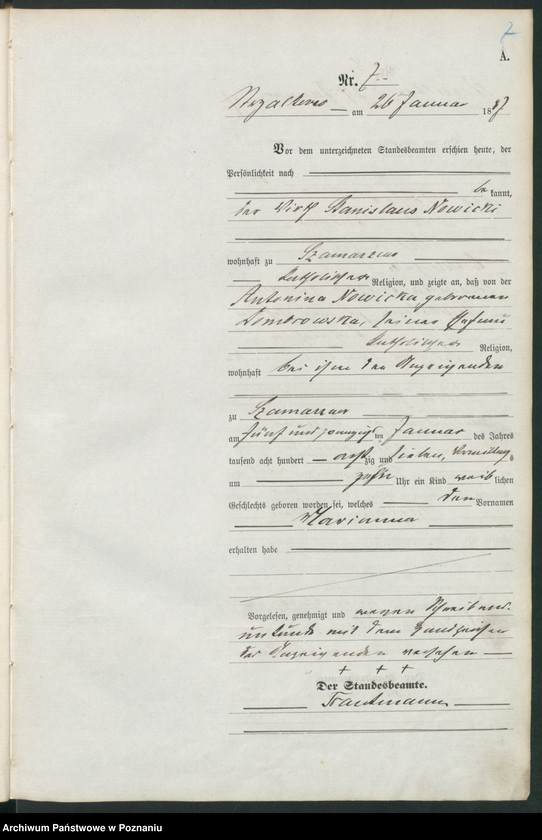 7
A.
Nr. 7
am 26 Januar 1887
Vor dem unterzeichneten Standesbeamten erschien heute, der
Persönlichkeit nach
bekannt,
der Wirth Stanislaus Nowicki
wohnhaft zu Szamarzewo
katholischer Religion, und zeigte an, daß von der
Antonina Nowicka geborenen
Dombrowska, seiner Ehefrau
katholischer Religion,
wohnhaft bei ihm dem Anzeigenden
zu Szamarzewo
am fünf und zwanzigsten Januar des Jahres
tausend acht hundert achtzig und sieben, Vormittags
um Uhr ein Kind weiblichen
Geschlechts geboren worden sei, welches den Vornamen
Marianna
erhalten habe
Vorgelesen, genehmigt und wegen Schreibens-
unkunde mit dem Handzeichen
des Anzeigenden versehen
+ + +
Der Standesbeamte.
Trautmann
Archiwum Państwowe w Poznaniu